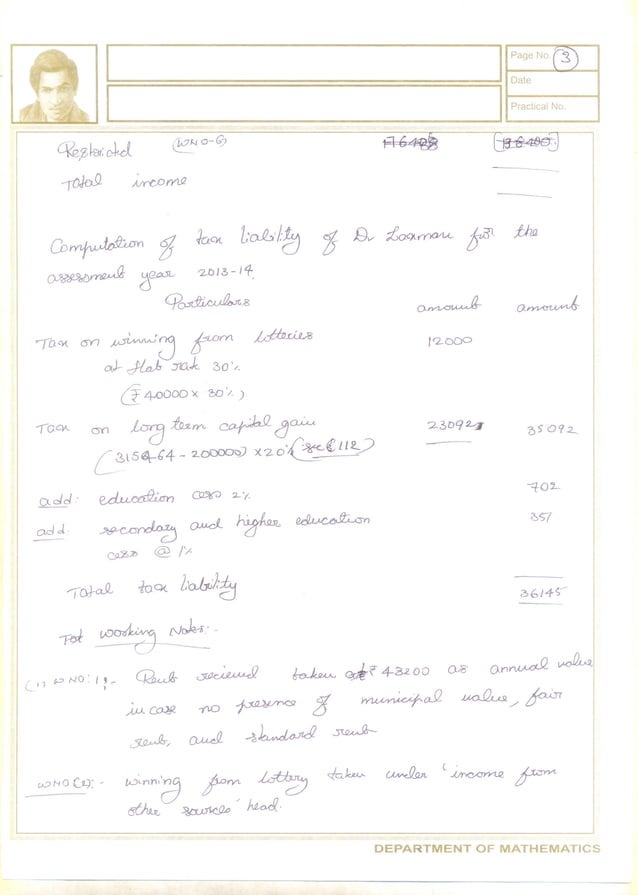 Page No. 3
Date
Practical No.
Restricted (WNO-6)
Total income
Computation of tax liability of Dr Laxman for the
assessment year 2013-14.
Particulars amount amount
Tax on winning from lotteries 12000
at flat rate 30%
(₹ 40000 x 30%)
Tax on long term capital gain 23092 35092
(315464 - 200000) x 20% (sec 112)
add: education cess 2% 702
add: secondary and higher education 351
cess @ 1%
Total tax liability 36145
Working Notes:-
(1) WNO:1:- Rent recieved taken ₹ 43200 as annual value
in case no presence of municipal value, fair
rent, and standard rent
WNO(2):- winning from lottery taken under 'income from
other sources' head.
DEPARTMENT OF MATHEMATICS